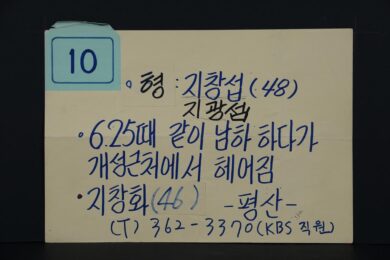 10
• 형 : 지창섭 (48)
지광섭
• 6.25때 같이 남하 하다가
개성근처에서 헤어짐
• 지창화 (46) - 평산 -
(T) 362-3370 (KBS 직원)